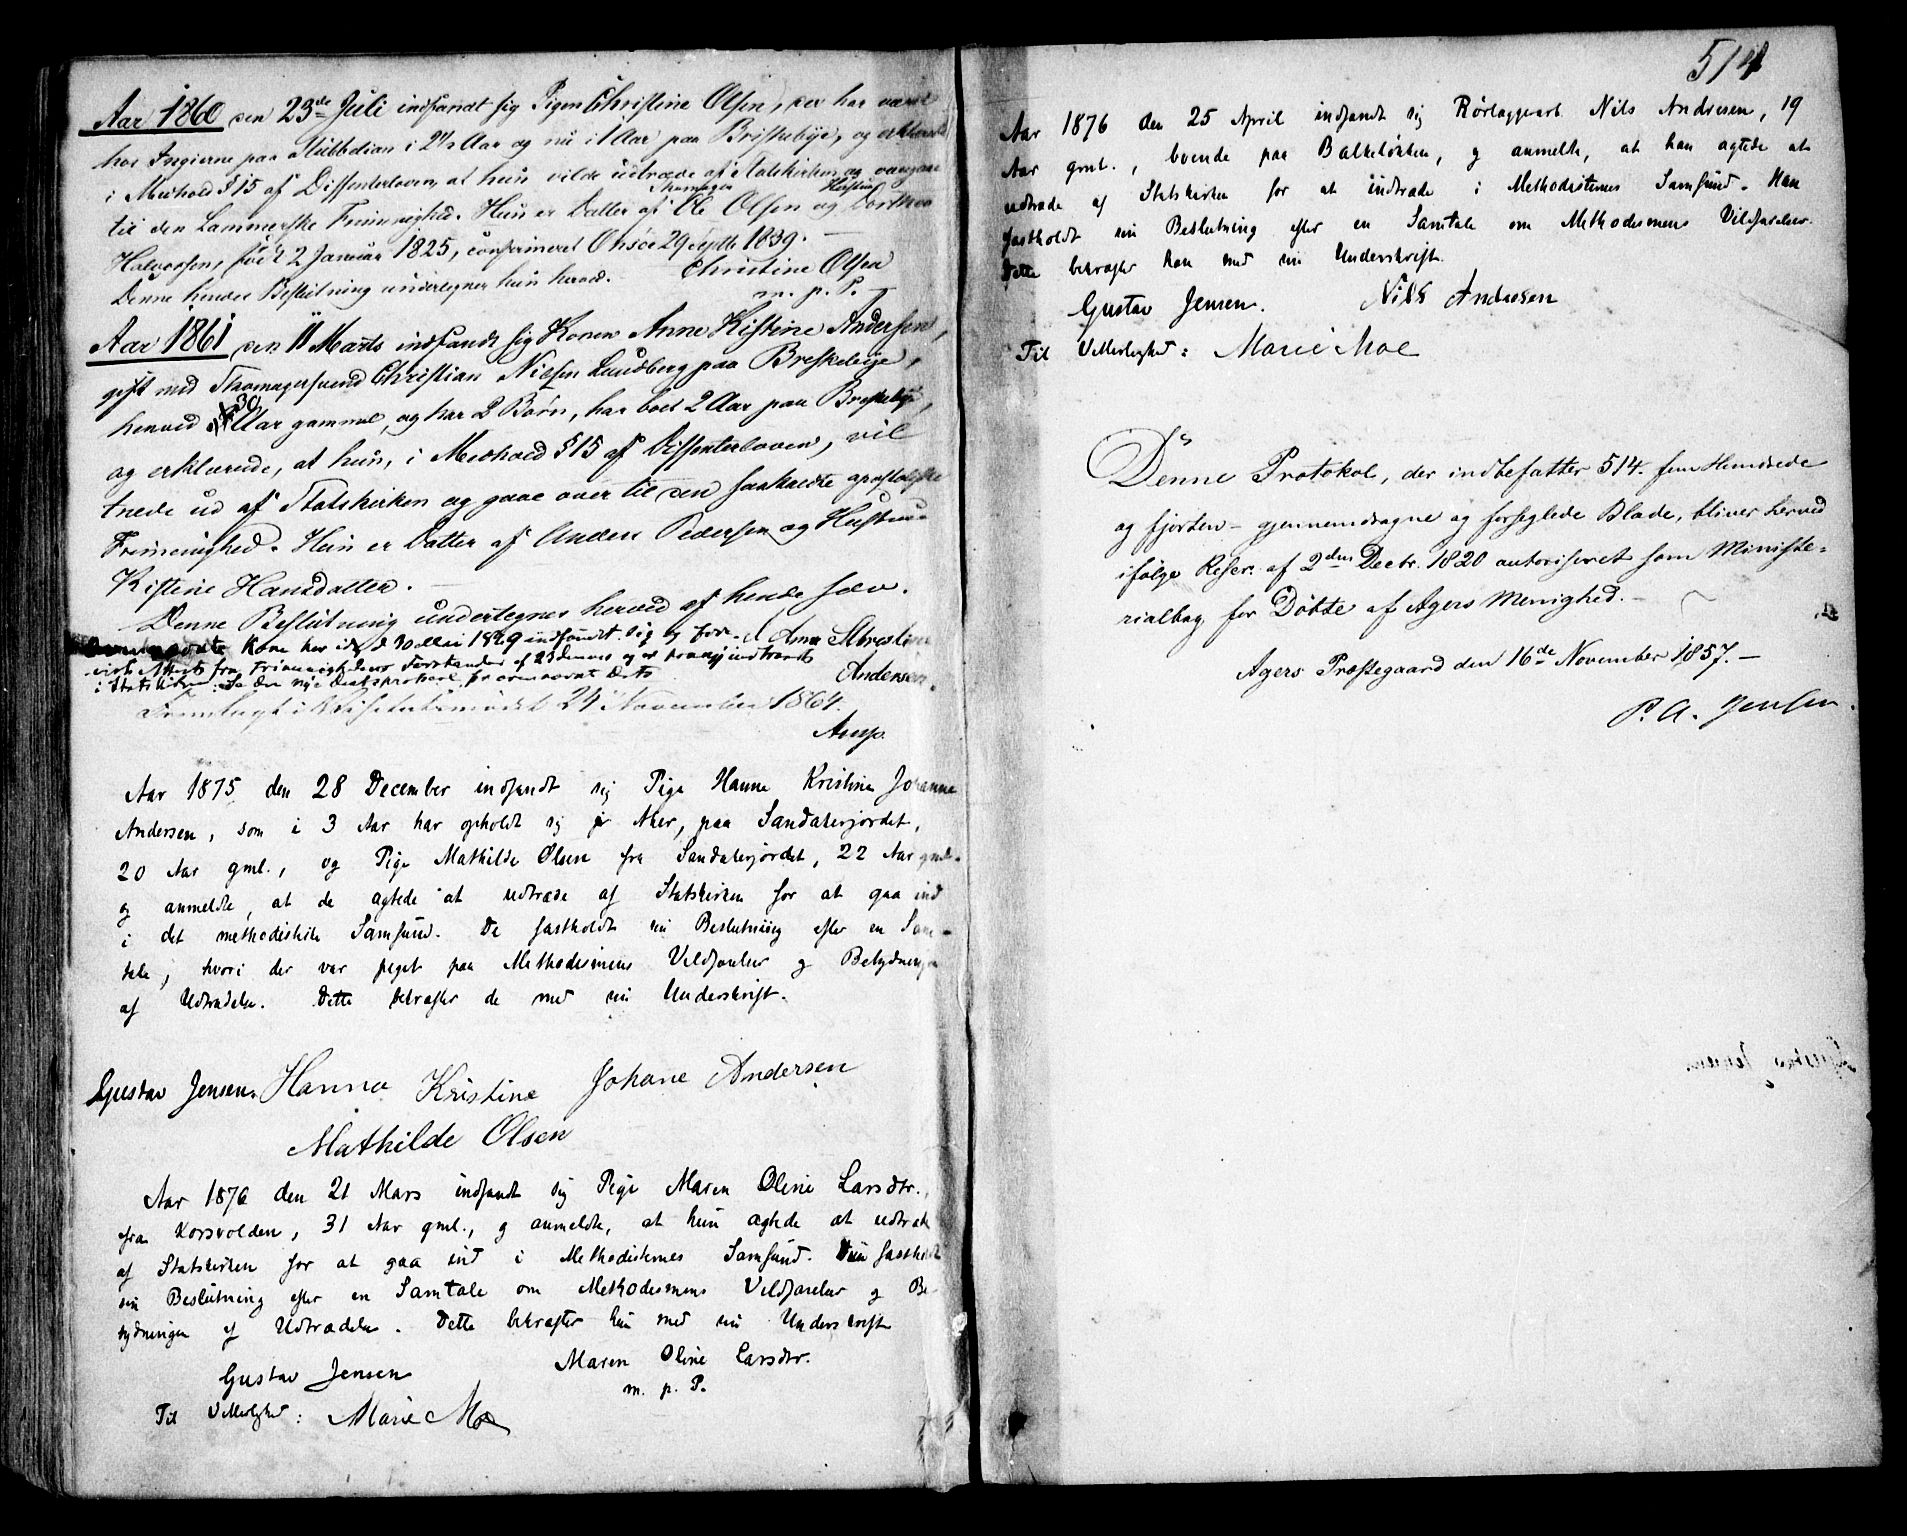 Aar 1860 den 23de Juli indfandt sig Pigen Christine Olsen, der har været
hos Ingierne paa i 2½ Aar og nu i 1 Aar paa Briskebye, og erklærede
i Medhold § 15 af Dissenterloven, at hun vilde udtræde af Statskirken og overgaae
til den Lammerske Frimenighed. Hun er Datter af Ole Olsen og Dorthea
Halvorsen, født 2 Januar 1825, confirmeret Onsöe 29 Septbr 1839.
Denne hendes Beslutning undertegner hun herved.
Christine Olsen
m. p. P.
Aar 1861 den 11 Marts indfandt sig Konen Anne Kistine Andersen,
gift med Skomagersvend Christian Nielsen Lundberg paa Breskebye,
henved 30 Aar gammel, og har 2 Børn, har boet 2 Aar paa Breskebye,
og erklærede, at hun, i Medhold § 15 af Dissenterloven, vil
træde ud af Statskirken og gaae over til den saakaldte apostoliske
Frimenighed. Hun er Datter af Anders Pedersen og Hustrue
Kistine Hansdatter.
Denne Beslutning undertegnes herved af hende selv.
Kone har d 30 Mai 1869 indfundet sig og fore-
vist Attest fra Frimenighedens Forstander af 23 dennes og er paany indtraadt
i Statskirken. Se den nye Protokol for Dato
Anne Christine
Andersen.
Fremlagt i 24 November 1864.
Aar 1875 den 28 December indfandt sig Pige Hanna Kristine Johanne
Andersen, som i 3 Aar har opholdt sig i Aker, paa Sandakerjordet,
20 Aar gml., og Pige Mathilde Olsen fra Sandakerjordet, 22 Aar gml.
og anmeldte, at de agtede at udtræde af Statskirken for at gaa ind
i det methodistiske Samfund. De fastholdt sin Beslutning efter en Sam-
tale, hvori der var peget paa Methodismens Vildfarelser og Betydningen
af Udtrædelse. Dette bekræfter de med sin Underskrift.
Gustav Jensen. Hanna Kristine Johane Andersen
Mathilde Olsen
Aar 1876 den 21 Mars indfandt sig Pige Maren Oline Larsdtr.,
fra Korsvolden, 31 Aar gml., og anmeldte, at hun agtede at udtræde
af Statskirken for at gaa ind i Methodisternes Samfund. Hun fastholdt
sin Beslutning efter en Samtale om Methodismens Vildfarelser og Be-
tydningen af Udtrædelse. Dette bekræfter hun med sin Underskrift
Gustav Jensen Maren Oline Larsdtr.
m. p. P.
Til Vitterlighed: Marie Moe
514
Aar 1876 den 25 April indfandt sig Rørlæggerarb. Nils Andresen, 19
Aar gml., boende paa Balkeløkken, og anmeldte, at han agtede at
udtræde af Statskirken for at indtræde i Methodisternes Samfund. Han
fastholdt sin Beslutning efter en Samtale om Methodismens Vildfarelser.
Dette bekræfter han med sin Underskrift.
Gustav Jensen. Nils Andresen
Til Vitterlighed: Marie Moe
Denne Protokol, der indbefatter 514. fem Hundrede
og fjorten - gjennemdragne og forseglede Blade, bliver herved
ifølge Rescr. af 2den Decbr. 1820 autoriseret som Ministe-
rialbog for Döbte af Agers Menighed.
Agers Præstegaard den 16de November 1857.
P. A. Jensen.